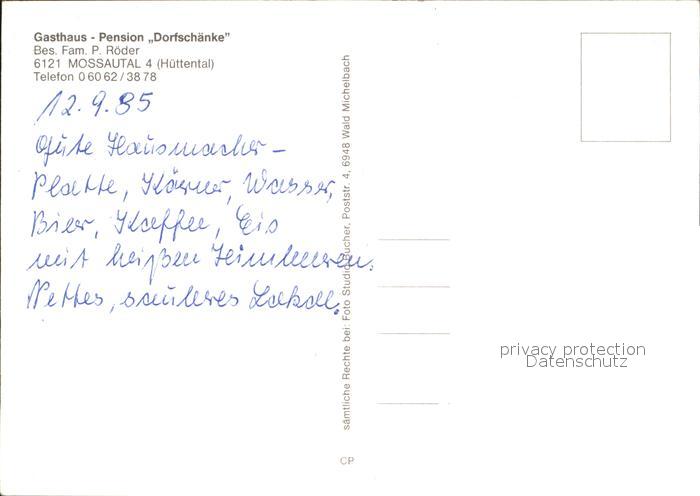 Gasthaus - Pension „Dorfschänke”
Bes. Fam. P. Röder
6121 MOSSAUTAL 4 (Hüttental)
Telefon 0 60 62 / 38 78
12.9.85
Gute Hausmacher-
Platte, Körner, Wasser,
Bier, Kaffee, Eis
mit heißen Himbeeren.
Nettes, sauberes Lokal.
sämtliche Rechte bei: Foto Studio Bucher, Poststr. 4, 6948 Wald Michelbach
privacy protection
Datenschutz
CP